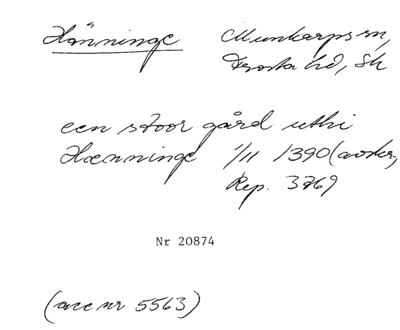 Hänninge Munkarps sn,
Frosta hd, Sk
een stoor gård uthi
Hænninge 1/11 1390 (avskr,
Rep. 3769
Nr 20874
(acc nr 5563)